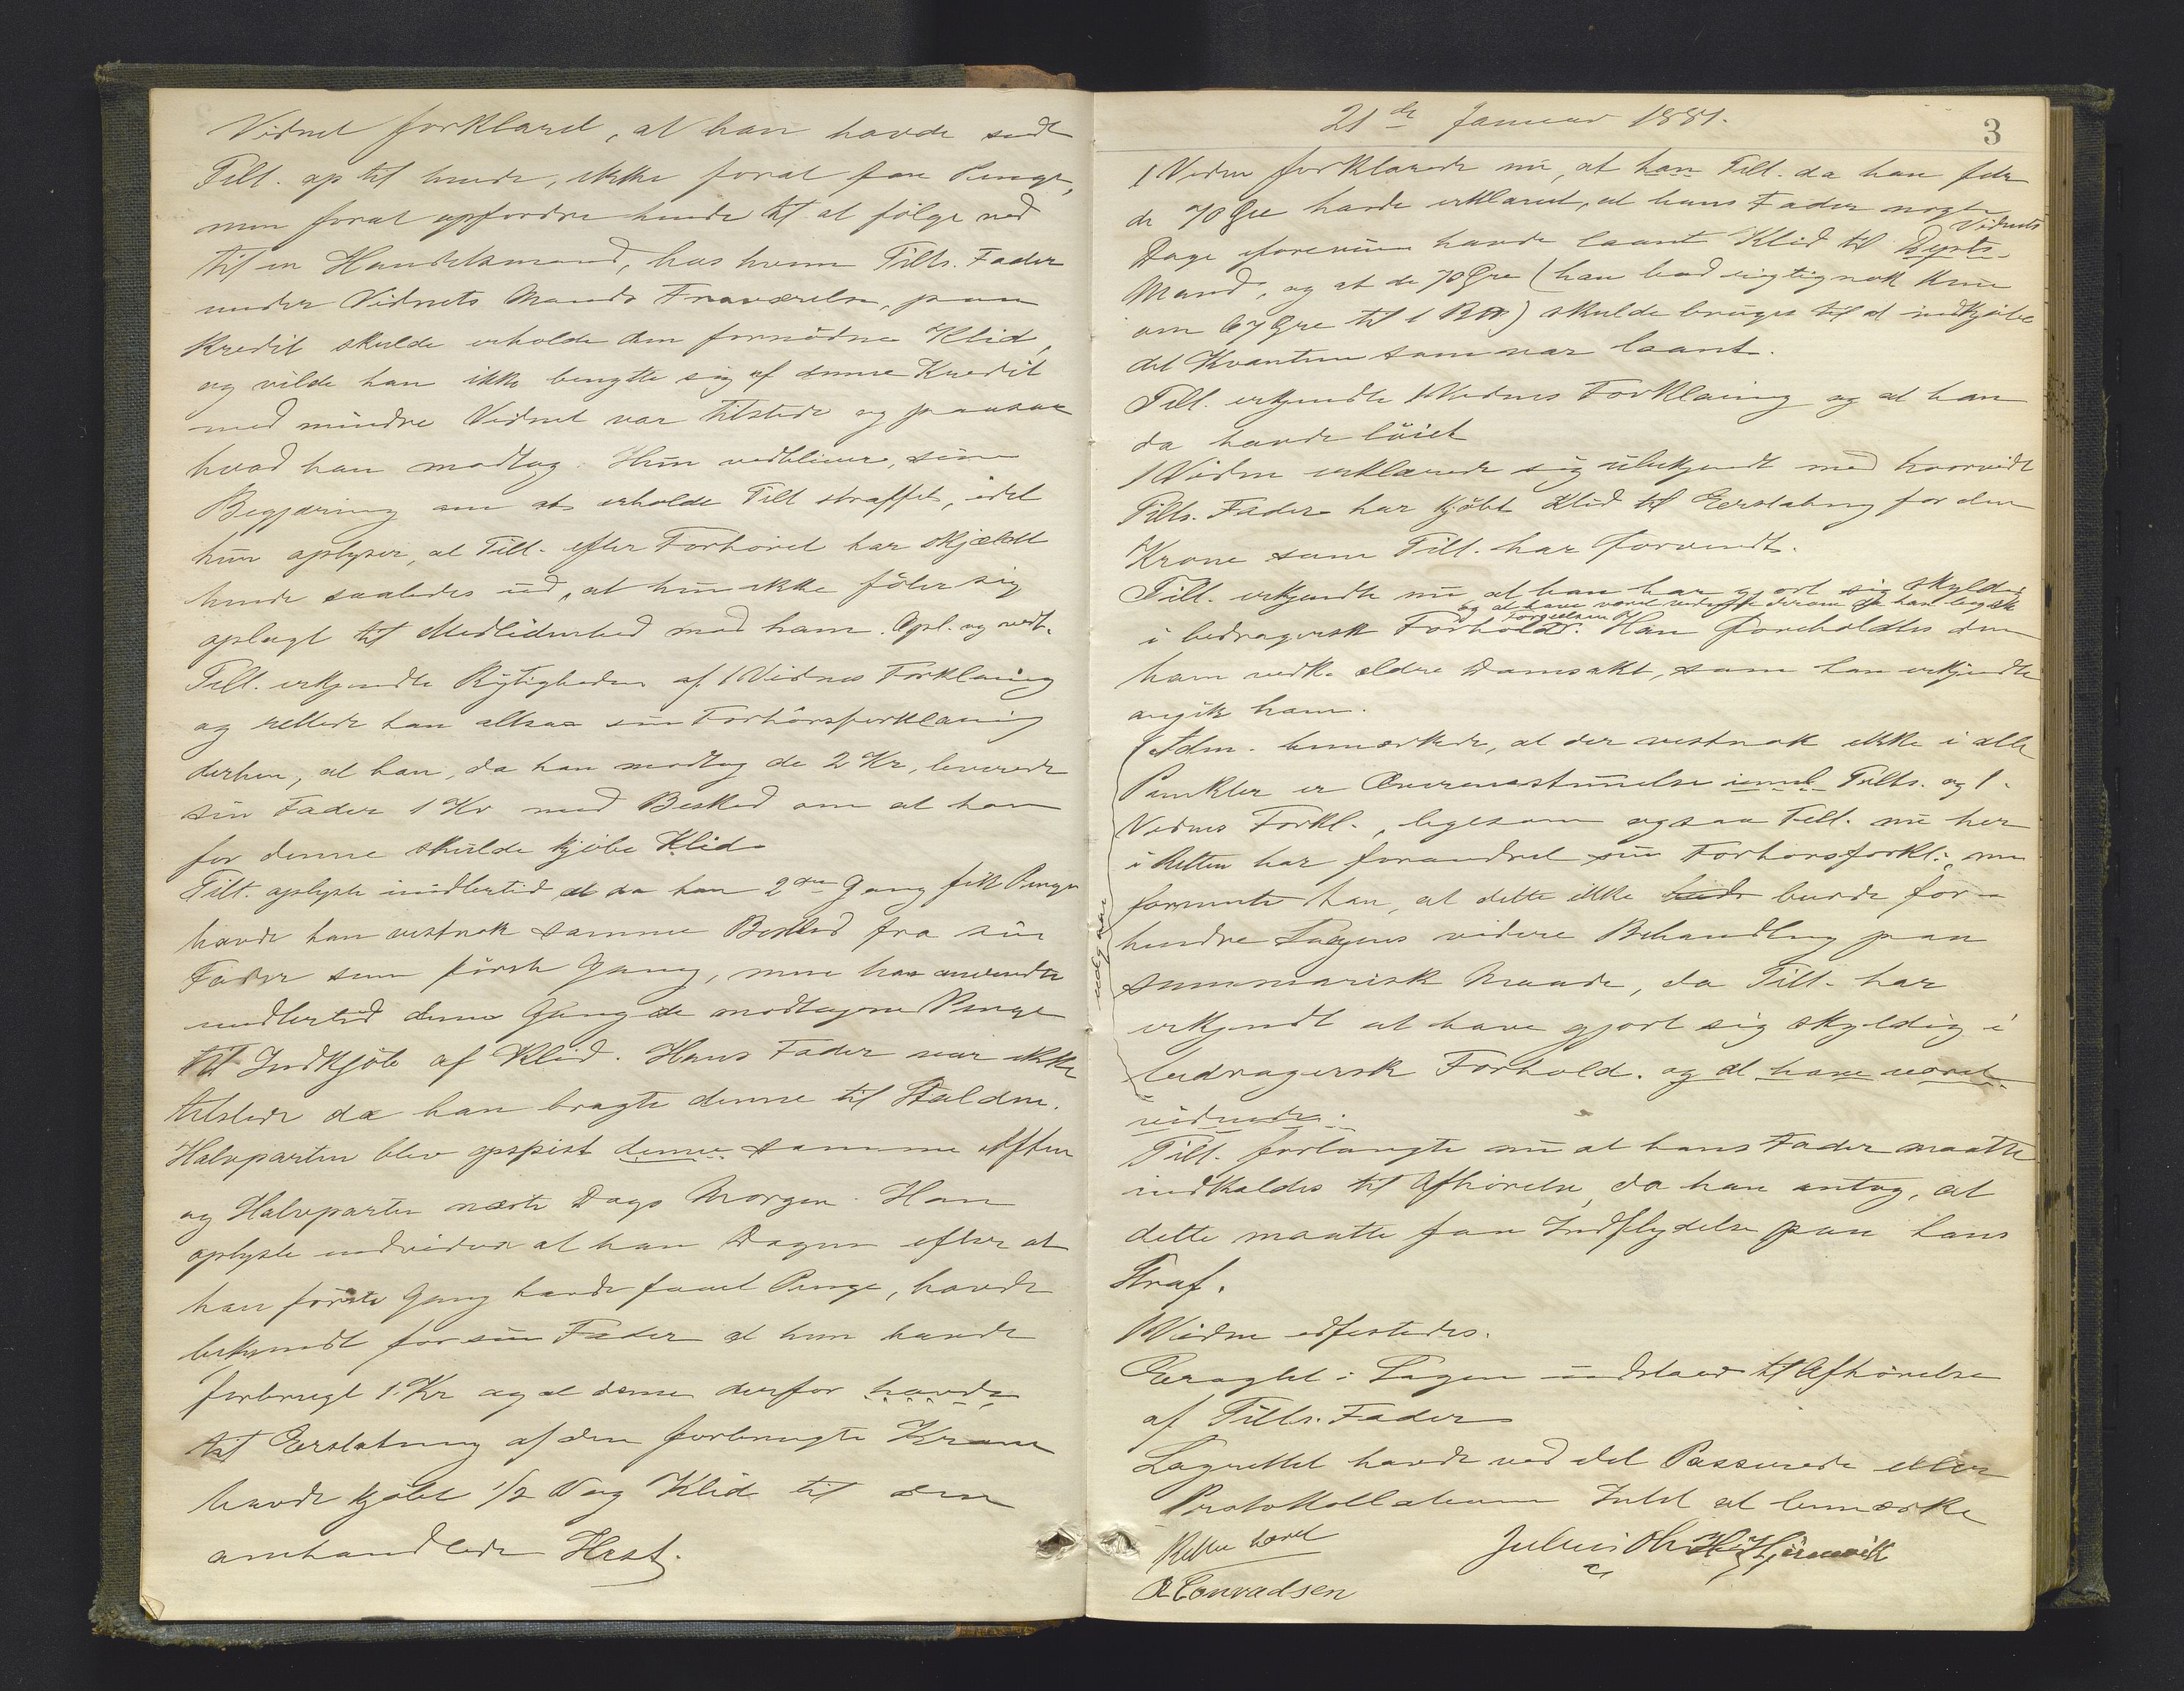 Vidnet forklared, at han havde sendt
Tilt. op til hende, ikke forat faa Penge,
men forat opfordre hende til at følge ned
til en Handelsmand, hos hvem Tilts. Fader
under Vidnets Mands Fraværelse, paa
Kredit skulde erholde den fornødne Klid,
og vilde han ikke benytte sig af denne Kredit
med mindre Vidnet var tilstede og paasaa
hvad han modtog. Hun vedbliver, sin
Begjæring om at erholde Tilt straffet, idet
hun oplyser, at Tilt. efter Forhøret har skjældt
hende saaledes ud, at hun ikke føler sig
oplagt til Medlidenhed med ham. Opl. og vedt.
Tilt. erkjendte Rigtigheden af 1 Vidnes Forklaring
og rettede han altsaa sin Forhørsforklaring
derhen, at han, da han modtog de 2 Kr, leverede
sin Fader 1 Kr med Besked om at han
for denne skulde kjøbe Klid
Tilt. oplyste imidlertid at da han 2den Gang fik Penge
havde han vistnok samme Besked fra sin
Fader som første Gang, men han anvendte
imidlertid denne Gang de modtagne Penge
til Indkjøb af Klid. Hans Fader var ikke
tilstede da han bragte denne til Stalden.
Halvparten blev opspist denne samme Aften
og Halvparten næste Dags Morgen. Han
oplyste endvidere at han Dagen efter at
han første Gang havde faaet Penge, havde
bekjendt for sin Fader at han havde
forbrugt 1 Kr og at denne derfor havde
til Erstatning af den forbrugte Krone
havde kjøbt 1/2 Vog Klid til den
omhandlede Hest.
21de Januar 1881.
3
1 Vidne forklarede nu, at han Tilt. da han fik
de 70 Øre havde erklaret, at hans Fader nogle
Vidnets
Dage forevien havde laant Klid til Depts.
Mand, og at de 70 Øre (han bad rigtignok kun
om 67 Øre til 1 B℔) skulde bruges til at indkjøbe
det Kvantum som var laant.
Tilt. erkjendte 1 Vidnes Forklaring og at han
da havde løiet
1 Vidne erklærede sig ubekjendt med hvorvidt
Tilts. Fader har kjøbt Klid til Erstatning for den
Krone som Tilt. har forvendt.
Tilt. erkjendte nu at han har gjort sig skyldig
og at have været vidende derom da han begik
Forseelsen
i bedragersk Forhold. Han foreholdtes den
ham vedk. ældre Domsakt, som han erkjendte
angik ham.
Adm. bemærkede, at der vistnok ikke i alle
Punkter er Overensstemmelse imel. Tilts. og 1.
Vidnes Forkl., ligesom ogsaa Tilt. nu her
i Retten har forandret sin Forhørsforkl., men
formente han, at dette ikke burde for-
hindre Sagens videre Behandling paa
summarisk Maade, da Tilt. har
erkjendt at have gjort sig skyldig i
bedragersk Forhold. og at have været
vidende.
udgaar
Tilt. forlangte nu at hans Fader maatte
indkaldes til Afhørelse, da han antog, at
dette maatte faa Indflydelse paa hans
Straf.
1 Vidne edfestedes.
Eragtet: Sagen udstaar til Afhørelse
af Tilts. Fader
Lagrettet havde ved det Passerede eller
Protokollationen Intet at bemærke
Retten hævet
Julius
Conradsen